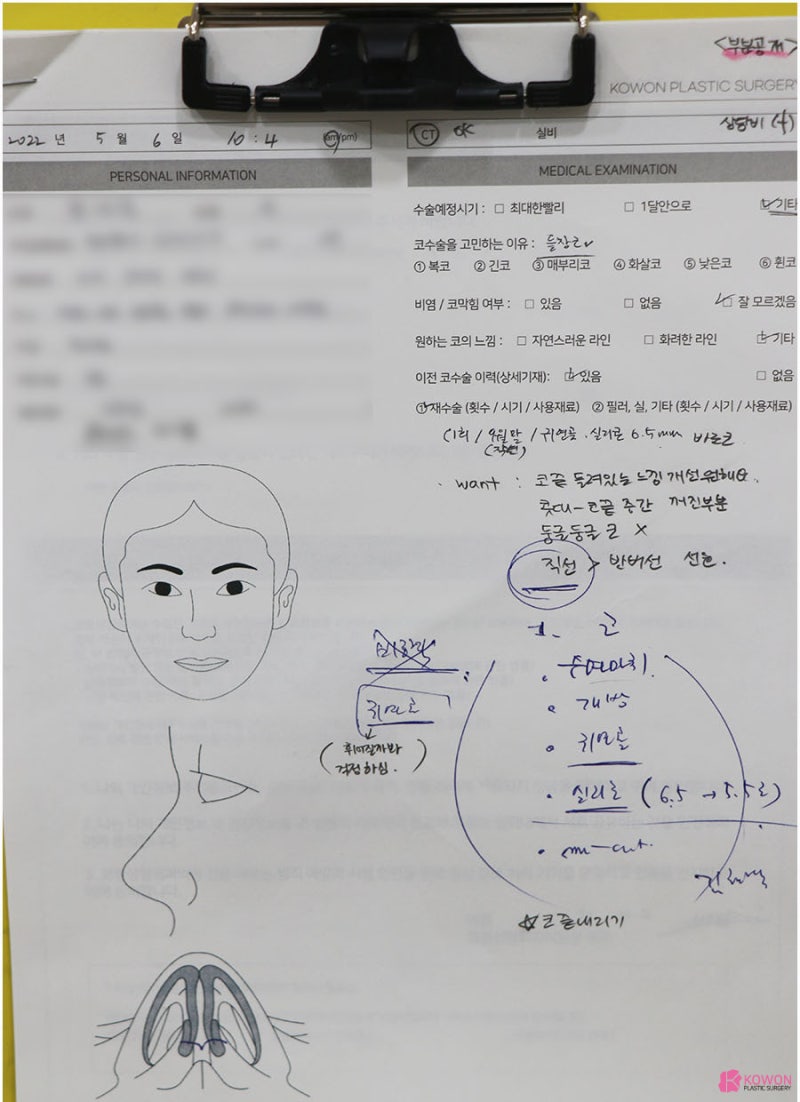 <부분공개>
KOWON PLASTIC SURGERY
2022 년 5 월 6 일 10 : 4 (am/pm)
CT OK 실비 상담비 (+)
PERSONAL INFORMATION
MEDICAL EXAMINATION
수술예정시기 : □ 최대한빨리 □ 1달안으로 □ 기타
코수술을 고민하는 이유 : 들창코
① 복코 ② 긴코 ③ 매부리코 ④ 화살코 ⑤ 낮은코 ⑥ 휜코
비염 / 코막힘 여부 : □ 있음 □ 없음 □ 잘 모르겠음
원하는 코의 느낌 : □ 자연스러운 라인 □ 화려한 라인 □ 기타
이전 코수술 이력(상세기재): □ 있음 □ 없음
① 재수술 (횟수 / 시기 / 사용재료) ② 필러, 실, 기타 (횟수 / 시기 / 사용재료)
(1회 / 9월말 / 귀연골 . 실리콘 6.5mm 바르코
(작년)
· want : 코끝 들려있는 느낌 개선원해요.
콧대 - 코끝 중간 꺼진부분
둥글둥글 코 X
직선 > 반버선 선호.
코
귀연골
· 개방
· 귀연골
(휘어질까봐
걱정하심.)
· 실리콘 (6.5 → 5.5로)
☆ 코끝내리기
KOWON
PLASTIC SURGERY